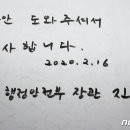 안 도와주셔서
사합니다.
2020.2.16
행정안전부 장관 진